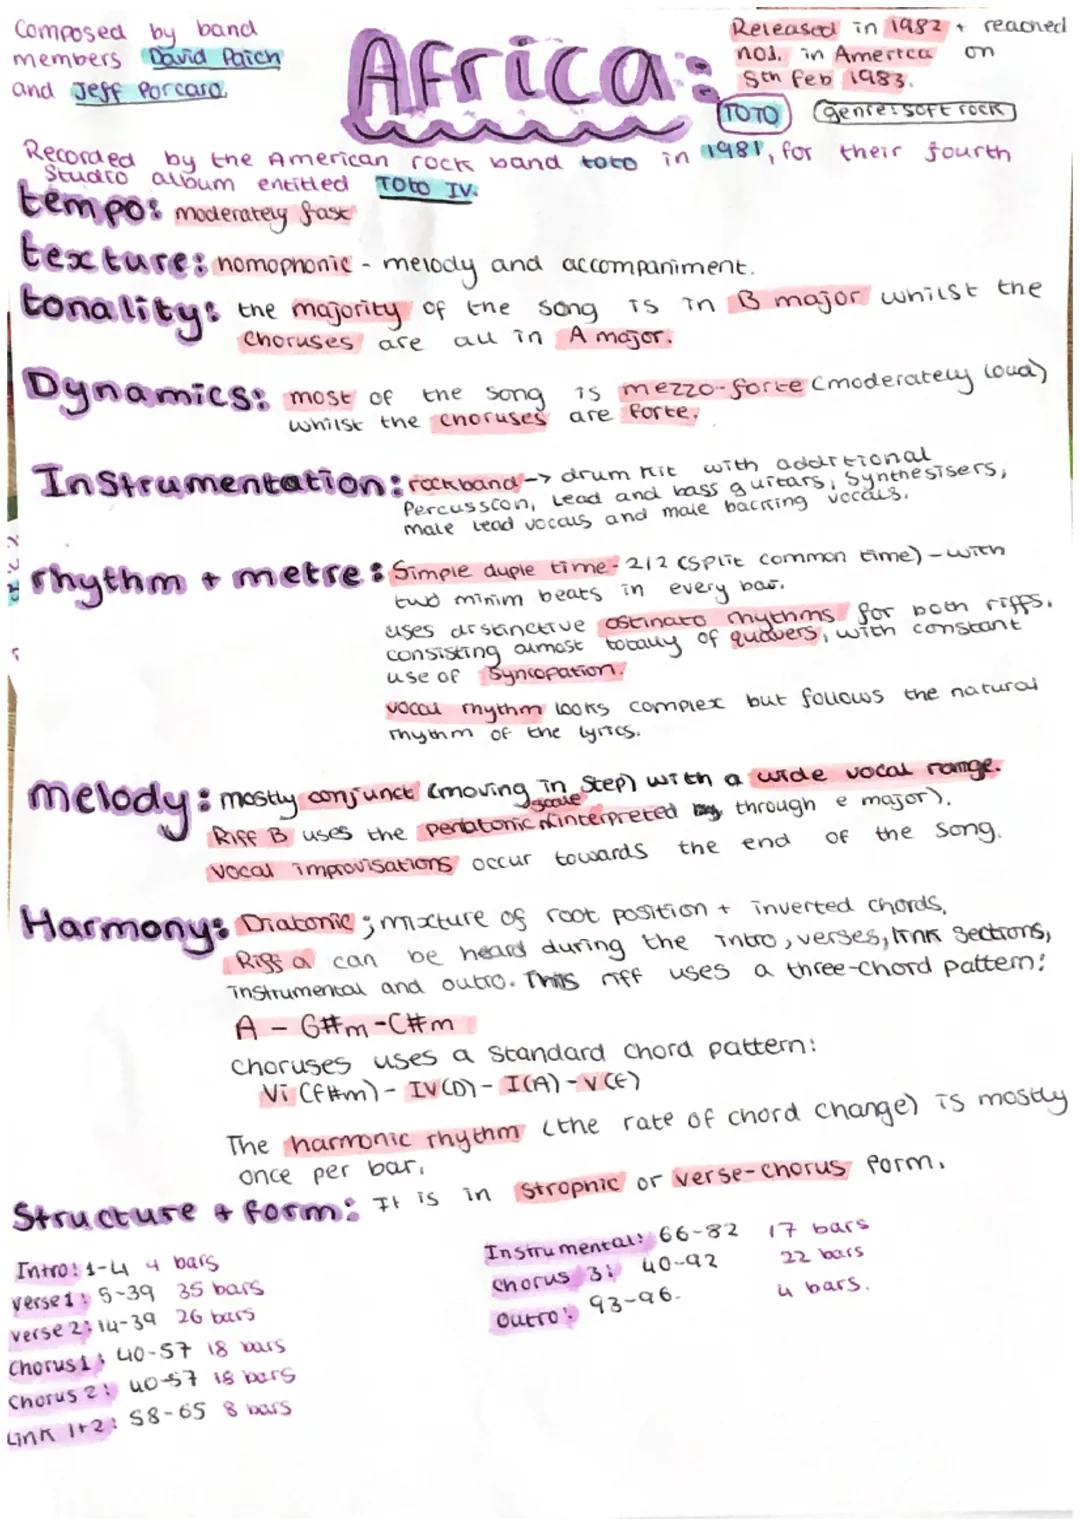 Composed by band
members David Paich
and Jeff Porcaro.
Africa:
Released in 1982 + reached
no1. in America on
5th Feb 1983.
TOTO
genre: soft rock
Recorded by the American rock band toto in 1981, for their fourth
Studio album entitled Toto IV.
tempo: moderately fast
texture: homophonic - melody and accompaniment.
tonality: the majority of the song is in B major whilst the
choruses are all in A major.
Dynamics: most of the song is mezzo-forte (moderately loud)
whilst the choruses are forte.
Instrumentation: rockband -> drum kit with additional
Percussion, Lead and bass guitars, Synthesisers,
male lead vocals and male backing vocals.
rhythm + metre: Simple duple time - 2/2 (split common time) - with
two minim beats in every bar.
uses distinctive ostinato rhythms for both riffs.
consisting almost totally of quavers, with constant
use of Syncopation.
vocal rhythm looks complex but follows the natural
rhythm of the lyrics.
melody: mostly conjunct (moving in Step) with a wide vocal range.
Riff B uses the pentatonic scale (interpreted through e major).
vocal improvisations occur towards the end of the song.
Harmony: Diatonic; mixture of root position + inverted chords,
Riff a can be heard during the intro, verses, link sections,
instrumental and outro. This riff uses a three-chord pattern:
A - G#m - C#m
choruses uses a standard chord pattern:
Vi (f#m) - IV (D) - I (A) - V (E)
The harmonic rhythm (the rate of chord change) is mostly
once per bar.
Structure + form: It is in strophic or verse-chorus form.
Intro: 1-4 4 bars
verse 1: 5-39 35 bars
verse 2: 14-39 26 bars
Chorus 1: 40-57 18 bars
Chorus 2: 40-57 18 bars
Link 1+2: 58-65 8 bars
Instrumental: 66-82 17 bars
Chorus 3: 40-92 22 bars
Outro: 93-96. 4 bars.